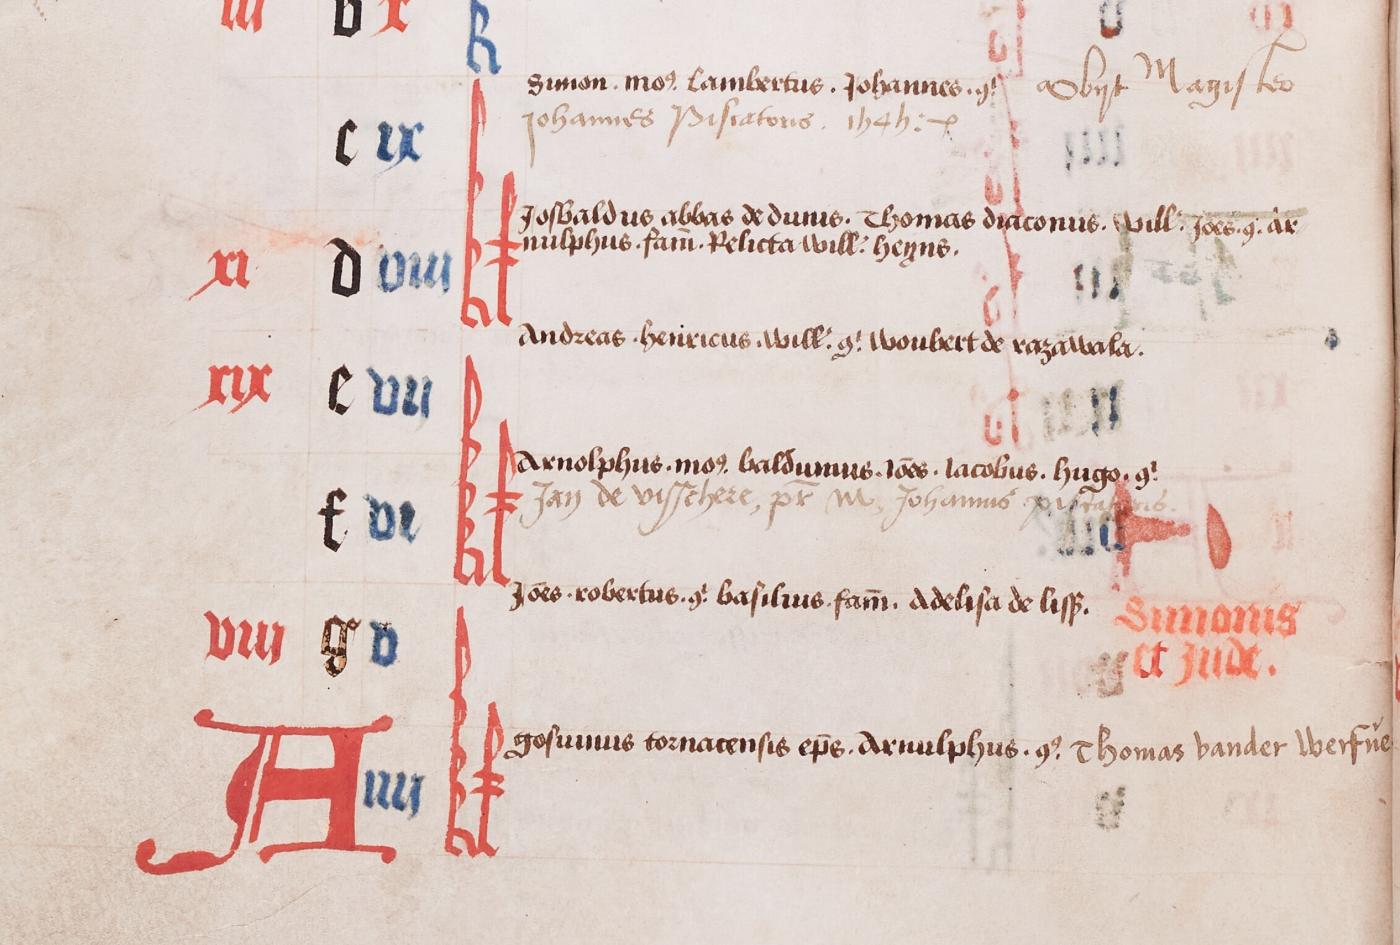 iii b x kl
Simon. mo9. Lambertus. Johannes. 9i. Obijt Magister
c ix
Johannes Piscatoris. 1545.
Josbaldus abbas de dunis. Thomas diaconus. Will'. Joes. 9. Ar
nulphus. fam. Relicta Will'. heyns.
xi d viii kl
Andreas. henricus. Will'. 9i. Woubert de
xix e vii
Arnolphus. mo9. balduinus. Joes. Iacobus. hugo. 9i
Jan de visschere, pr M. Johannis piscatoris.
f vi kl
Joes. robertus. 9i. basilius. fam. Adelisa de lisp.
Simonis
et Jude.
viii g v
gosuinus tornacensis eps. Arnulphus. 9i. Thomas vander Werfue
A iiii kl